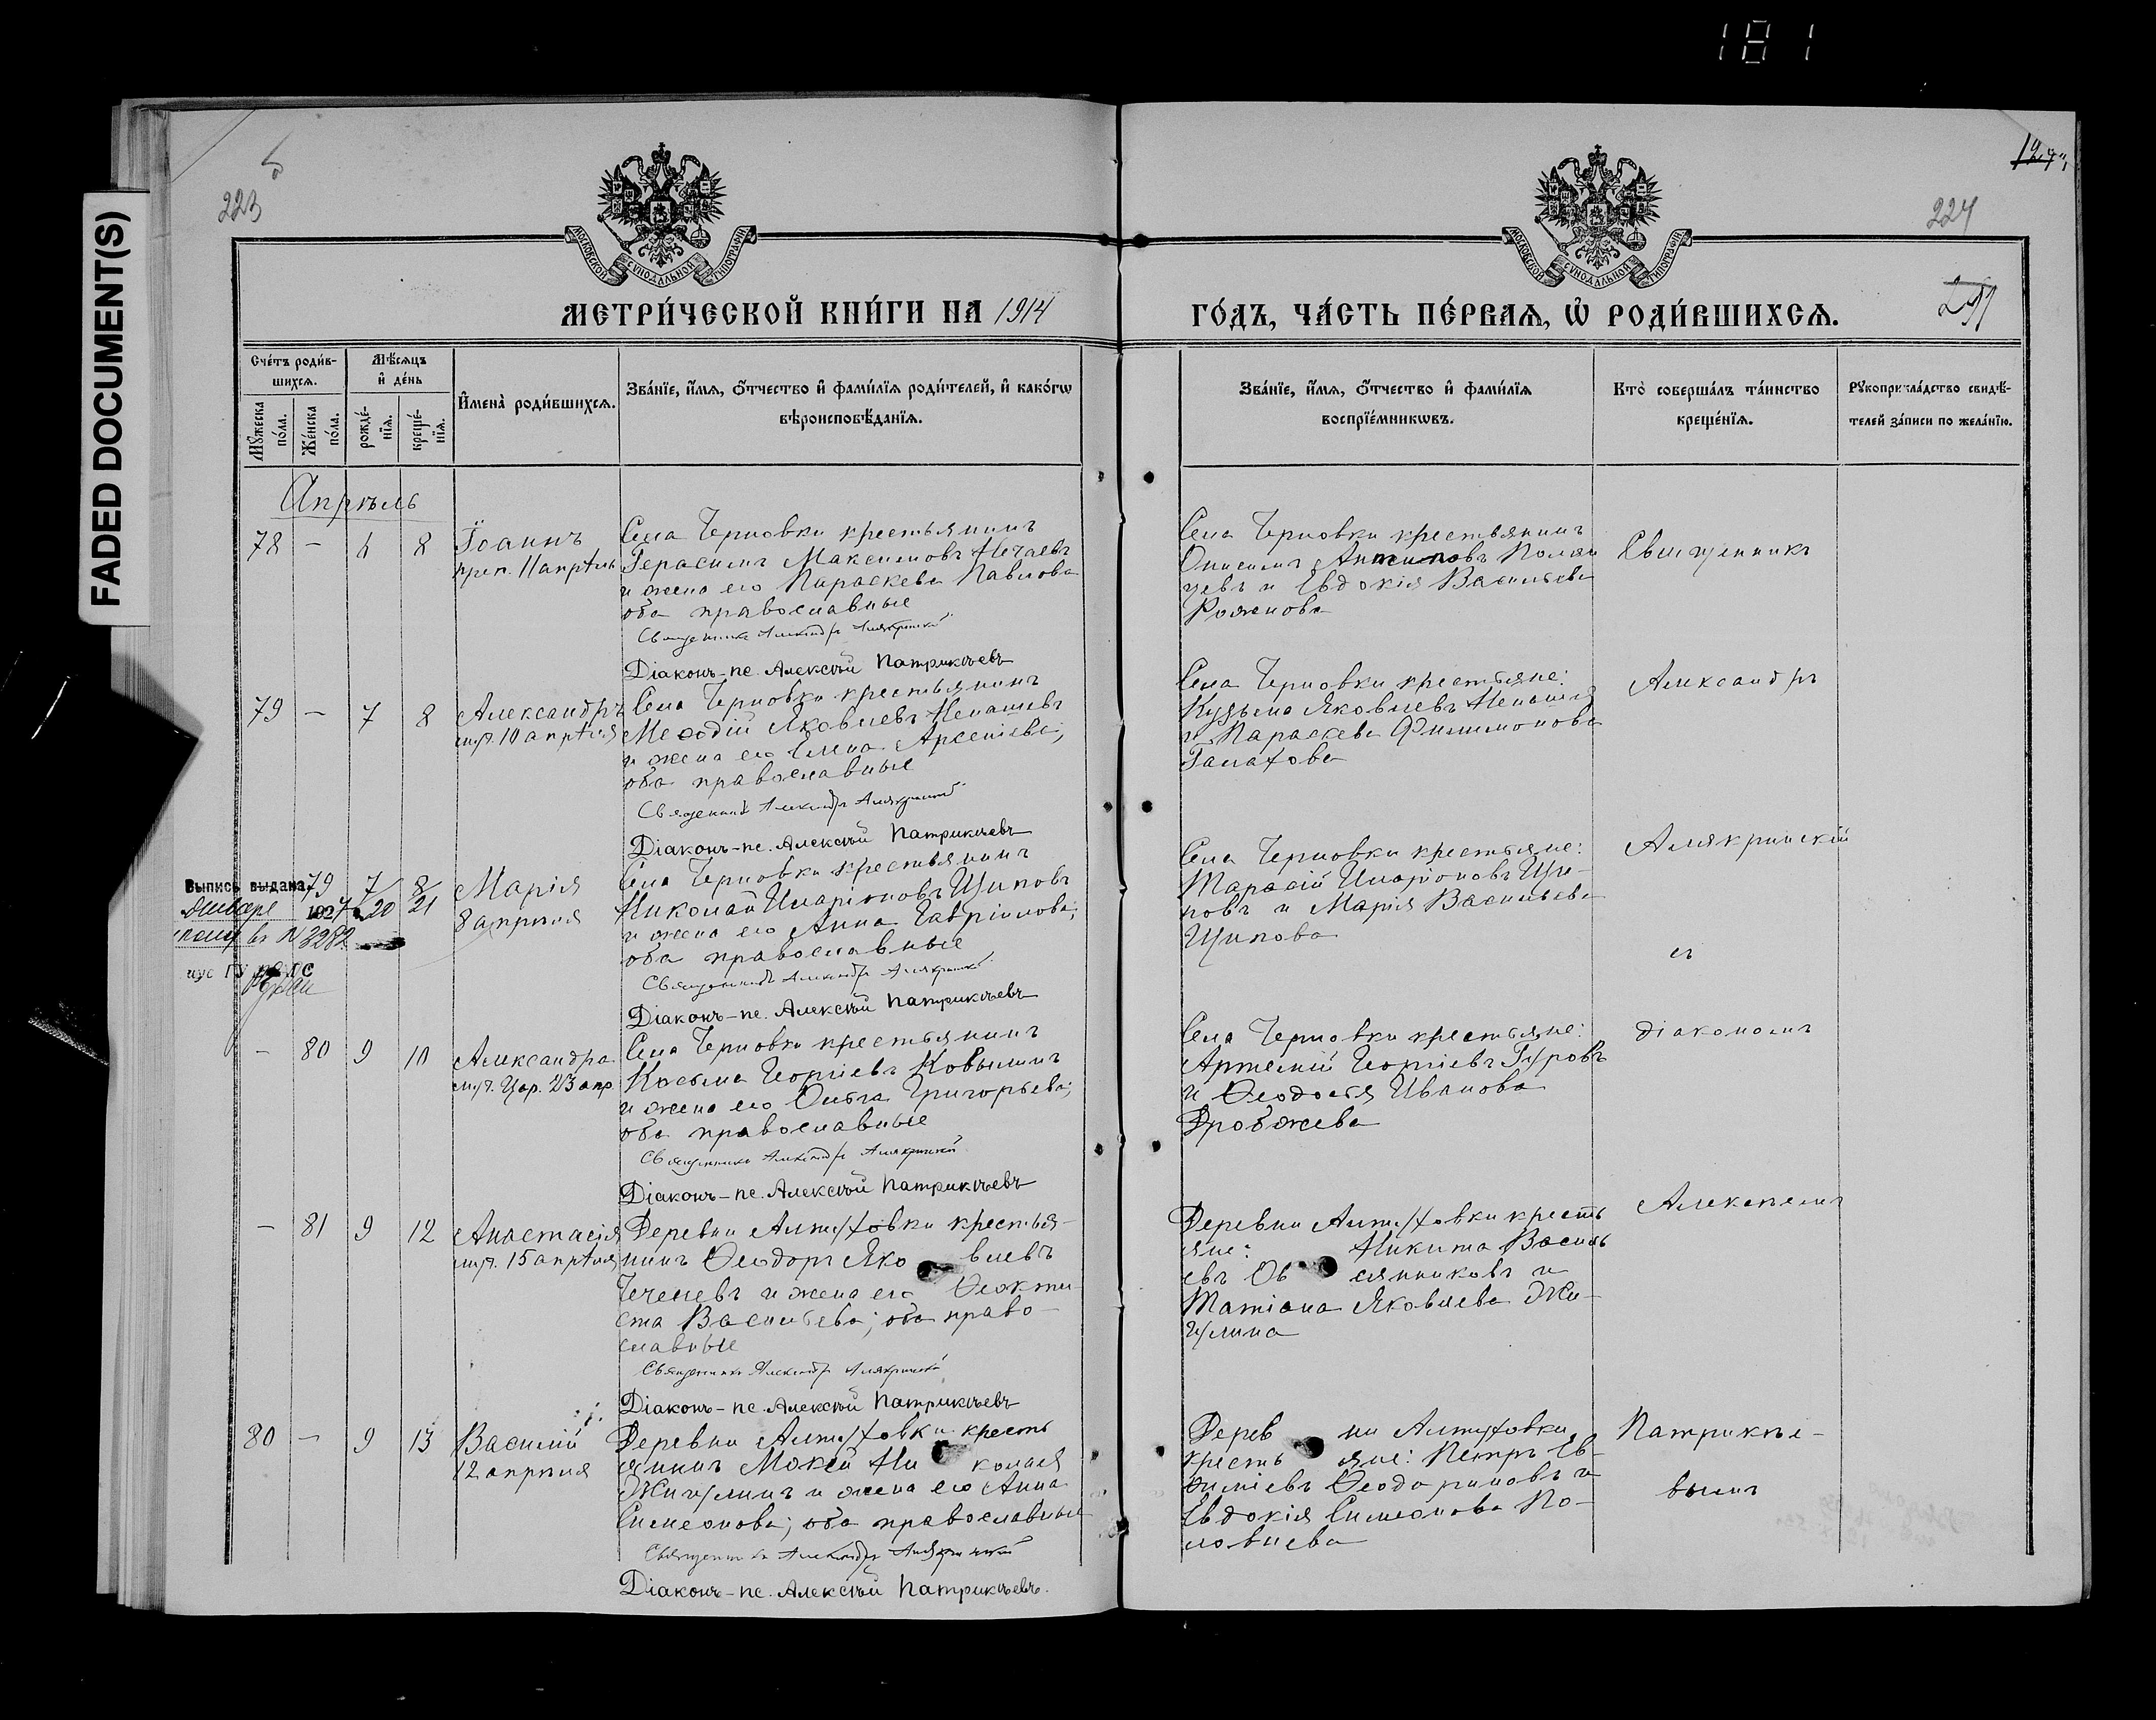 181
FADED DOCUMENT(S)
223
224
МОСКОВСКОЙ СѴНОДАЛЬНОЙ ТИПОГРАФІИ
МОСКОВСКОЙ СѴНОДАЛЬНОЙ ТИПОГРАФІИ
МЕТРИ́ЧЕСКОЙ КНИ́ГИ НА 1914
ГО́ДЪ, ЧА́СТЬ ПЕ́РВАѦ, Ѡ҆ РОДИ́ВШИХСѦ.
Сче́тъ роди́в-
шихсѧ.
Мѣ́сѧцъ
и҆ де́нь
Мꙋ́жеска
по́ла.
Же́нска
по́ла.
рожде́-
нїѧ.
креще́-
нїѧ.
И҆мена̀ роди́вшихсѧ.
Зва́нїе, и҆́мѧ, ѻ҆́тчество и҆ фами́лїѧ роди́телей, и҆ како́гѡ
вѣроисповѣ́данїѧ.
Зва́нїе, и҆́мѧ, ѻ҆́тчество и҆ фами́лїѧ
воспрїе́мникѡвъ.
Кто̀ соверша́лъ та́инство
креще́нїѧ.
Рꙋкоприкла́дство свидѣ́-
телей за́писи по жела́нїю.
Апрѣль
78 — 6 8 Іоаннъ
преп. 11 апрѣля
Села Черновки крестьянинъ
Герасимъ Максимовъ Нечаевъ
и жена его Параскева Павлова
оба православные
Священникъ Александръ Алякринскій
Діаконъ-пс. Алексѣй Патрикѣевъ
Села Черновки крестьянинъ
Онисимъ Антиповъ Полян
цевъ и Евдокія Васильева
Рожнова
Священникъ
79 — 7 8 Александръ
муч. 10 апрѣля
Села Черновки крестьянинъ
Меѳодій Яковлевъ Ненашевъ
и жена его Елена Арсеніева;
оба православные
Священникъ Александръ Алякринскій
Діаконъ-пс. Алексѣй Патрикѣевъ
Села Черновки крестьяне:
Кузьма Яковлевъ Ненашев
и Параскева Филимонова
Галахова
Александръ
Выпись выдана
января 1927 г.
за № 3282
79 7/20 8/21 Марія
8 апрѣля
Села Черновки крестьянинъ
Николай Иларіоновъ Щиповъ
и жена его Анна Гавріилова;
оба православные
Священникъ Александръ Алякринскій
Діаконъ-пс. Алексѣй Патрикѣевъ
Села Черновки крестьяне:
Тарасій Иларіоновъ Щи-
повъ и Марія Васильева
Щипова
Алякринскій
съ
— 80 9 10 Александра
муч. Цар. 23 апр.
Села Черновки крестьянинъ
Косьма Георгіевъ Ковылинъ
и жена его Ольга Григорьева;
оба православные
Священникъ Александръ Алякринскій
Діаконъ-пс. Алексѣй Патрикѣевъ
Села Черновки крестьяне:
Артемій Георгіевъ Гуровъ
и Ѳеодосія Иванова
Дробжева
діакономъ
— 81 9 12 Анастасія
муч. 15 апрѣля
Деревни Алтуховки крестья-
нинъ Ѳеодоръ Яковлевъ
Чечневъ и жена его Ѳеокти-
ста Васильева; оба право-
славные
Священникъ Александръ Алякринскій
Діаконъ-пс. Алексѣй Патрикѣевъ
Деревни Алтуховки кресть
яне: Никита Василь
евъ Овсянниковъ и
Татіана Яковлева Жи-
гулина
Алексѣемъ
80 — 9 13 Василій
12 апрѣля
Деревни Алтуховки кресть
янинъ Мокей Николаев
Жигулинъ и жена его Анна
Симеонова; оба православные
Священникъ Александръ Алякринскій
Діаконъ-пс. Алексѣй Патрикѣевъ.
Деревни Алтуховки
крестьяне: Петръ Ев-
ѳиміевъ Ѳеодориновъ и
Евдокія Симеонова По-
ловнева
Патрикѣе-
вымъ